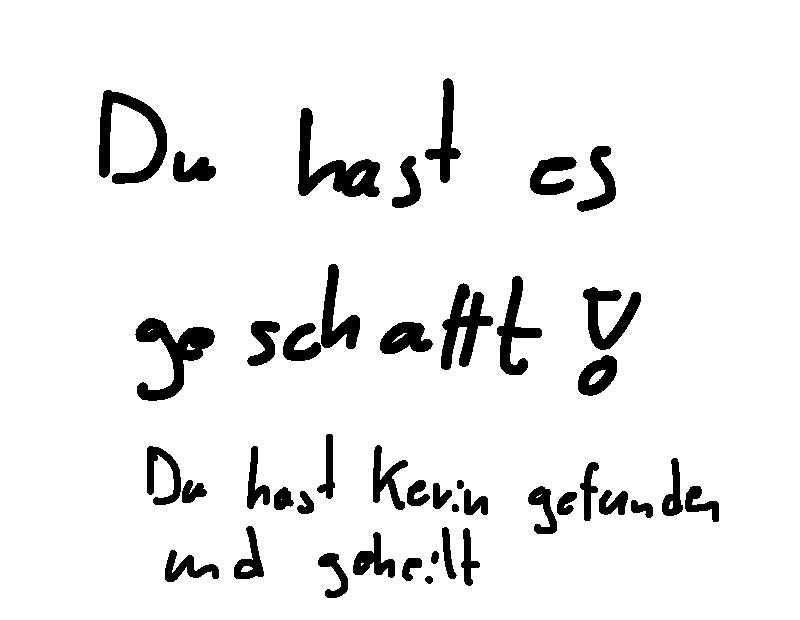 Du hast es
geschafft!
Du hast Kevin gefunden
und geheilt